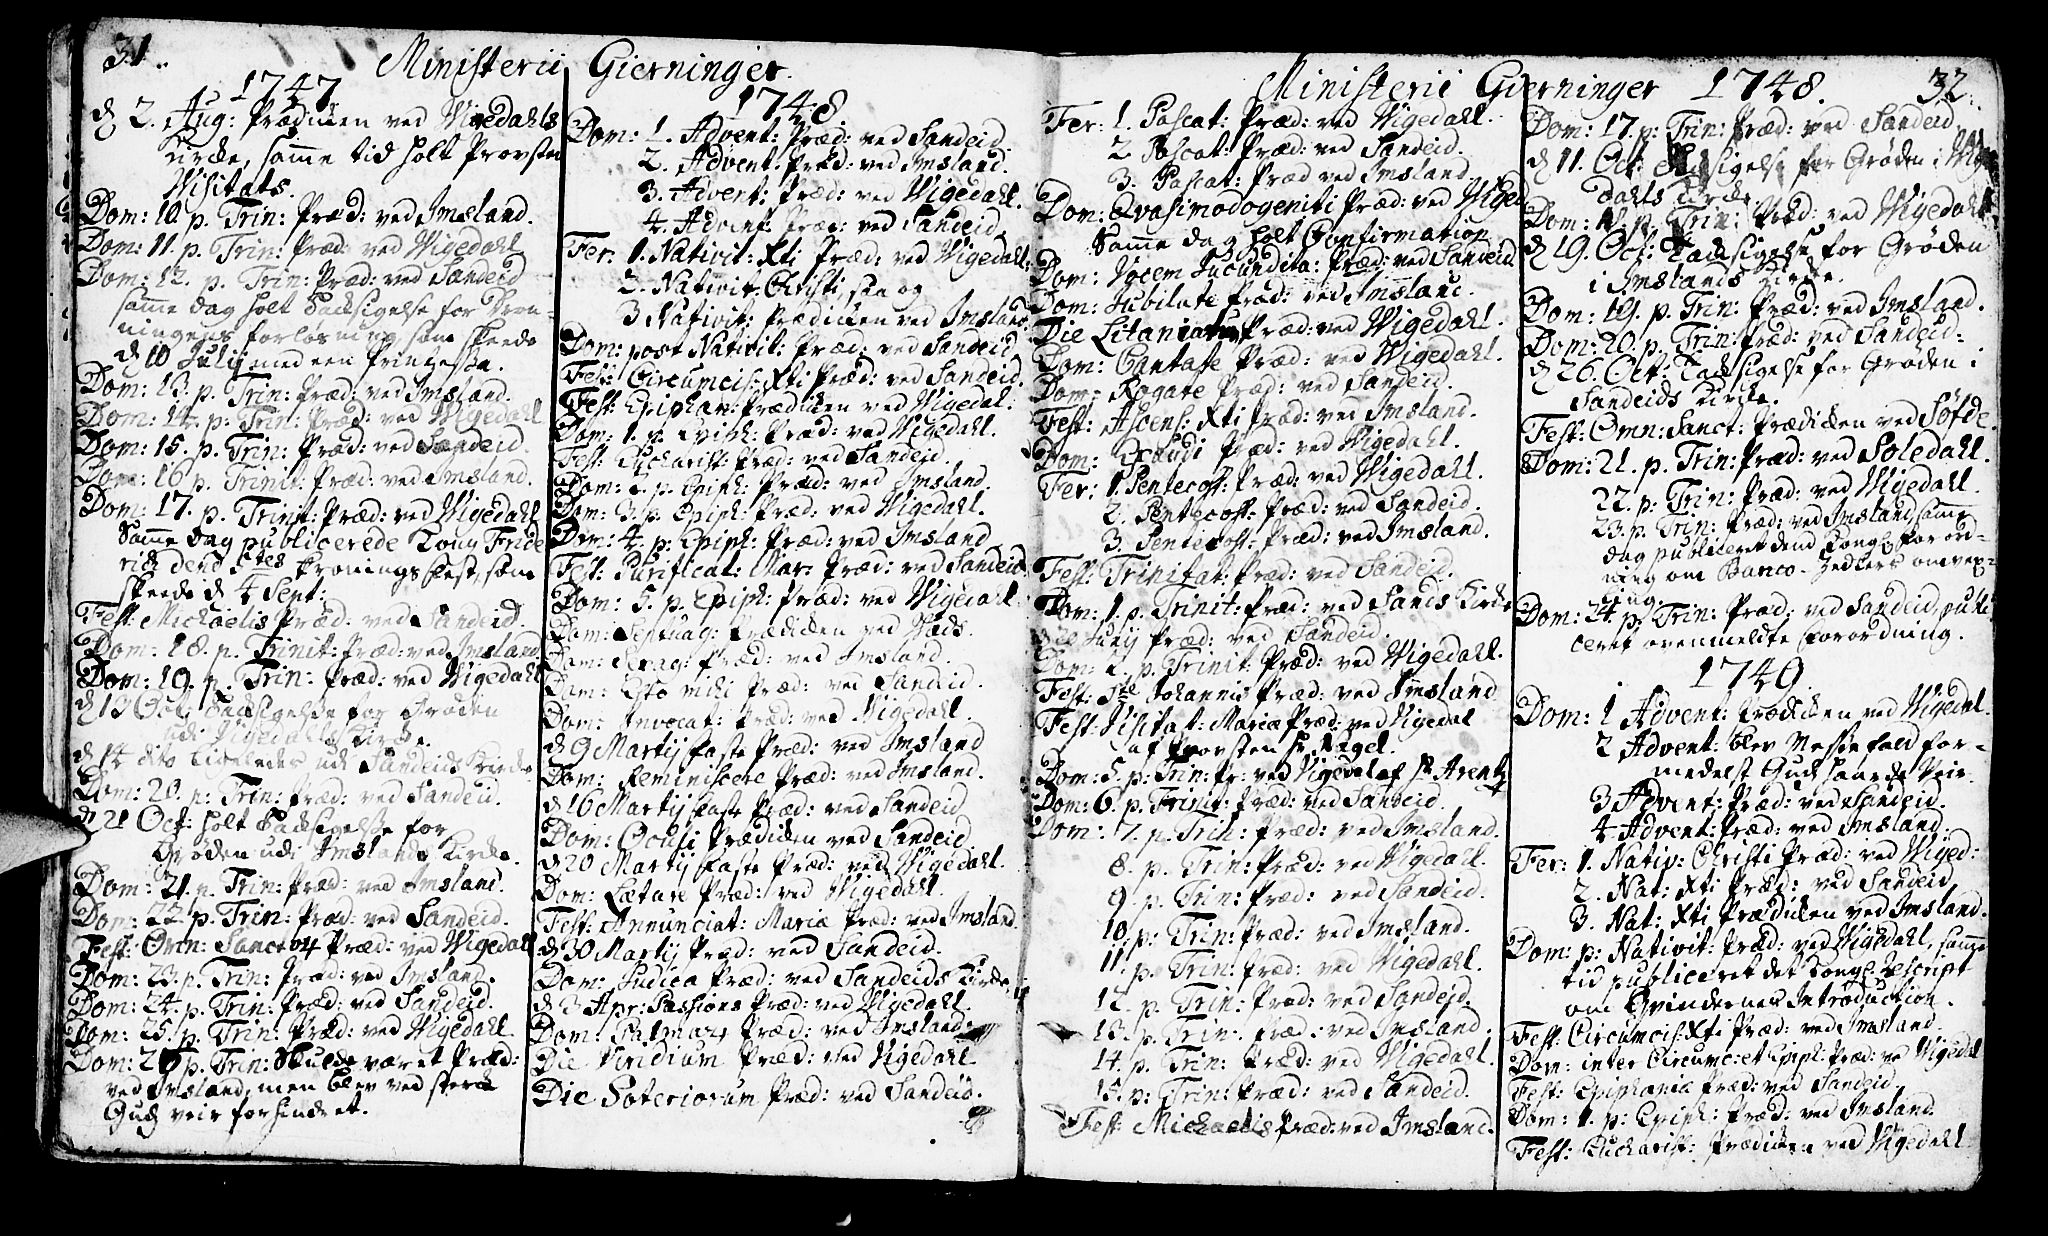 31.
Ministerii Gierninger.
1747
d 2. Aug: Prædiken ved Vigedahls
Kirche, samme tid holt Provsten
Visitats.
Dom: 10. p. Trin: Præd: ved Imsland.
Dom: 11. p. Trin: Præd: ved Vigedahl
Dom: 12. p. Trin: Præd: ved Sandeid
samme dag holt Tacksigelse for Dron-
ningens forløsning, som skeede
d 10 Julij med een Princesse.
Dom: 13. p. Trin: Præd: ved Imsland.
Dom: 14. p. Trin: Præd: ved Vigedahl
Dom: 15. p. Trin: Præd: ved Sandeid.
Dom: 16 p. Trinit: Præd: ved Imsland.
Dom: 17. p. Trinit: Præd: ved Vigedahl
Samme dag publicerede Kong Fride
rich dend 5tes Kronings Fest, som
skeede d 4 Sept:
Fest: Michaelis Præd: ved Sandeid.
Dom: 18. p. Trinit: Præd: ved Imsland
Dom: 19. p. Trin: Præd: ved Vigedahl
d 13 Oct: Tacksigelse for Grøden
udi Vigedahls Kirche.
d 14 dito ligeledes udi Sandeids Kirche
Dom: 20. p: Trin: Præd: ved Sandeid.
d 21 Oct: holt Tacksigelse for
Grøden udi Imslands Kirche.
Dom: 21. p. Trin: Præd: ved Imsland.
Dom: 22 p. Trin: Præd: ved Sandeid.
Fest: Omn: Sanctor Præd: ved Vigedahl
Dom: 23. p. Trin: Præd: ved Imsland.
Dom: 24. p. Trin: Præd: ved Sandeid.
Dom: 25. p. Trin: Præd: ved Vigedahl
Dom: 26 p. Trin: Skulde været Præd:
ved Imsland, men blev ved sterck
Guds veir forhindret.
1748
Dom: 1. Advent: Præd: ved Sandeid.
2. Advent: Præd: ved Imsland.
3. Advent: Præd: ved Vigedahl.
4. Advent: Præd: ved Sandeid
Fer: 1. Nativit: Xti Præd: ved Vigedahl.
2. Nativit: Christi
3 Nativit: Prædiken ved Imsland
Dom: post Nativit: Præd: ved Sandeid
Fest: Circumcis: Xti Præd: ved Sandeid.
Fest: Epiphan: Prædiken ved Vigedal.
Dom: 1. p. Epiph: Præd: ved Vigedahl.
Fest: Eucharist: Præd: ved Sandeid.
Dom: 2. p. Epiph: Præd: ved Imsland.
Dom: 3. p. Epiph: Præd: ved Vigedahl.
Dom: 4. p: Epiph: Præd: ved Imsland
Fest: Purificat: Mar: Præd: ved Sandeid
Dom: 5. p. Epiph: Præd: ved Vigedahl
Dom: Septuag: Prædiken ved Vads.
Dom: Sexag: Præd: ved Imsland.
Dom: Esto mihi Præd: ved Sandeid.
Dom: Invocat: Præd: ved Vigedahl.
d 9 Martij Faste Præd: ved Imsland
Dom: Reminiscere Præd: ved Imsland.
d 16 Martij Faste Præd: ved Sandeid
Dom: Oculi Prædiken ved Sandeid
d 20 Martij Faste Præd: ved Vigedahl.
Dom: Lætare Præd: ved Vigedahl.
Fest: Annunciat: Mariæ Præd: ved Imsland
d 30 Martij Præd: ved Sandeid.
Dom: Judica Præd: ved Sandeids Kirche
d 3 Apr: Passions Præd: ved Vigedahl.
Dom: Palmar Præd: ved Imsland:
Die Viridium Præd: ved Vigedahl.
Die Soteriorum Præd: ved Sandeid.
Ministerii Gierninger 1748.
32.
Fer: 1. Pascat: Præd: ved Vigedahl.
2 Pascat: Præd: ved Sandeid.
3. Pascat: Præd ved Imsland
Dom: Qvasimodogeniti Præd: ved Viged
Samme dag holt Confirmation
Dom: Vocem Jucundita: Præd: ved Sandeid
Dom: Jubilate Præd: ved Imsland.
Die Litaniarum Præd: ved Vigedahl.
Dom: Cantate Præd: ved Vigedahl.
Dom: Rogate Præd: ved Sandeid.
Fest: Ascens: Xti Præd: ved Imsland.
Dom: Exaudi Præd: ved Vigedahl.
Fer: 1. Pentecost: Præd: ved Vigedahl.
2. Pentecost: Præd: ved Sandeid.
3. Pentecost: Præd: ved Imsland.
Fest: Trinitat: Præd: ved Sandeid.
Dom: 1. p. Trinit: Præd: ved Sands Kirche
Junij Præd: ved Sandeid
Dom: 2. p. Trinit: Præd: ved Vigedahl.
Fest: Ste Johannis Præd: ved Imsland
Fest: Visitat: Mariæ Præd: ved Vigedal
af Provsten Hr Nagel.
Dom: 5. p: Trin: Pr: ved Vigedal af Hr Arentz
Dom: 6. p. Trinit: Præd: ved Sandeid.
Dom: 7. p. Trin: Præd: ved Imsland.
8. p. Trin: Præd: ved Vigedahl.
9. p. Trin: Præd: ved Sandeid.
10. p: Trin: Præd: ved Imsland.
11. p. Trin: Præd: ved Vigedahl.
12. p. Trin: Præd: ved Sandeid.
13. p. Trin: Præd: ved Imsland.
14. p. Trin: Præd: ved Vigedahl.
15. p: Trin: Præd: ved Sandeid.
Fest: Michaelis Præd: ved Imsland.
Dom: 17. p: Trin: Præd: ved Sandeid.
d 11. Oct: Tacksigelse for Grøden i Vige
dahls Kirche
Dom: 18. p. Trin: Præd: ved Vigedahl
d 19. Oct: Tacksigelse for Grøden
i Imslands Kirche.
Dom: 19. p. Trin: Præd: ved Imsland.
Dom: 20. p. Trin: Præd: ved Sandeid.
d 26. Oct: Tacksigelse for Grøden i
Sandeids Kirche.
Fest: Omn: Sanct: Prædiken ved Søfde
Dom: 21. p. Trin: Præd: ved Soledahl.
22. p: Trin: Præd: ved Vigedahl.
23. p. Trin: Præd: ved Imsland, samme
dag publiceret dend Kongl: Forord-
ning om Banco-Zedlers omvex-
ling.
Dom: 24. p. Trin: Præd: ved Sandeid, publi
ceret ovenmeldte Forordning.
1749.
Dom: 1 Advent: Prædiken ved Vigedal.
2 Advent: blev Messefald for-
medelst Guds haarde Veir.
3 Advent: Præd: ved Sandeid.
4. Advent: Præd: ved Imsland
Fer: 1. Nativ: Christi Præd: ved Viged:
2. Nat: Xti Præd: ved Sandeid
3. Nat: Xti Prædiken ved Imsland.
Dom: p: Nativit: Præd: ved Vigedahl, samme
tid publiceret det Kongl: Rescript
om Qvindernes Introduction.
Fest: Circumcis: Xti Præd: ved Imsland.
Dom: inter Circumc: et Epiph: Præd: ved Vigedal
Fest: Epiphaniæ Præd: ved Sandeid.
Dom: 1. p: Epiph: Præd: ved Imsland.
Fest: Eucharist: Prædiken ved Vigedahl